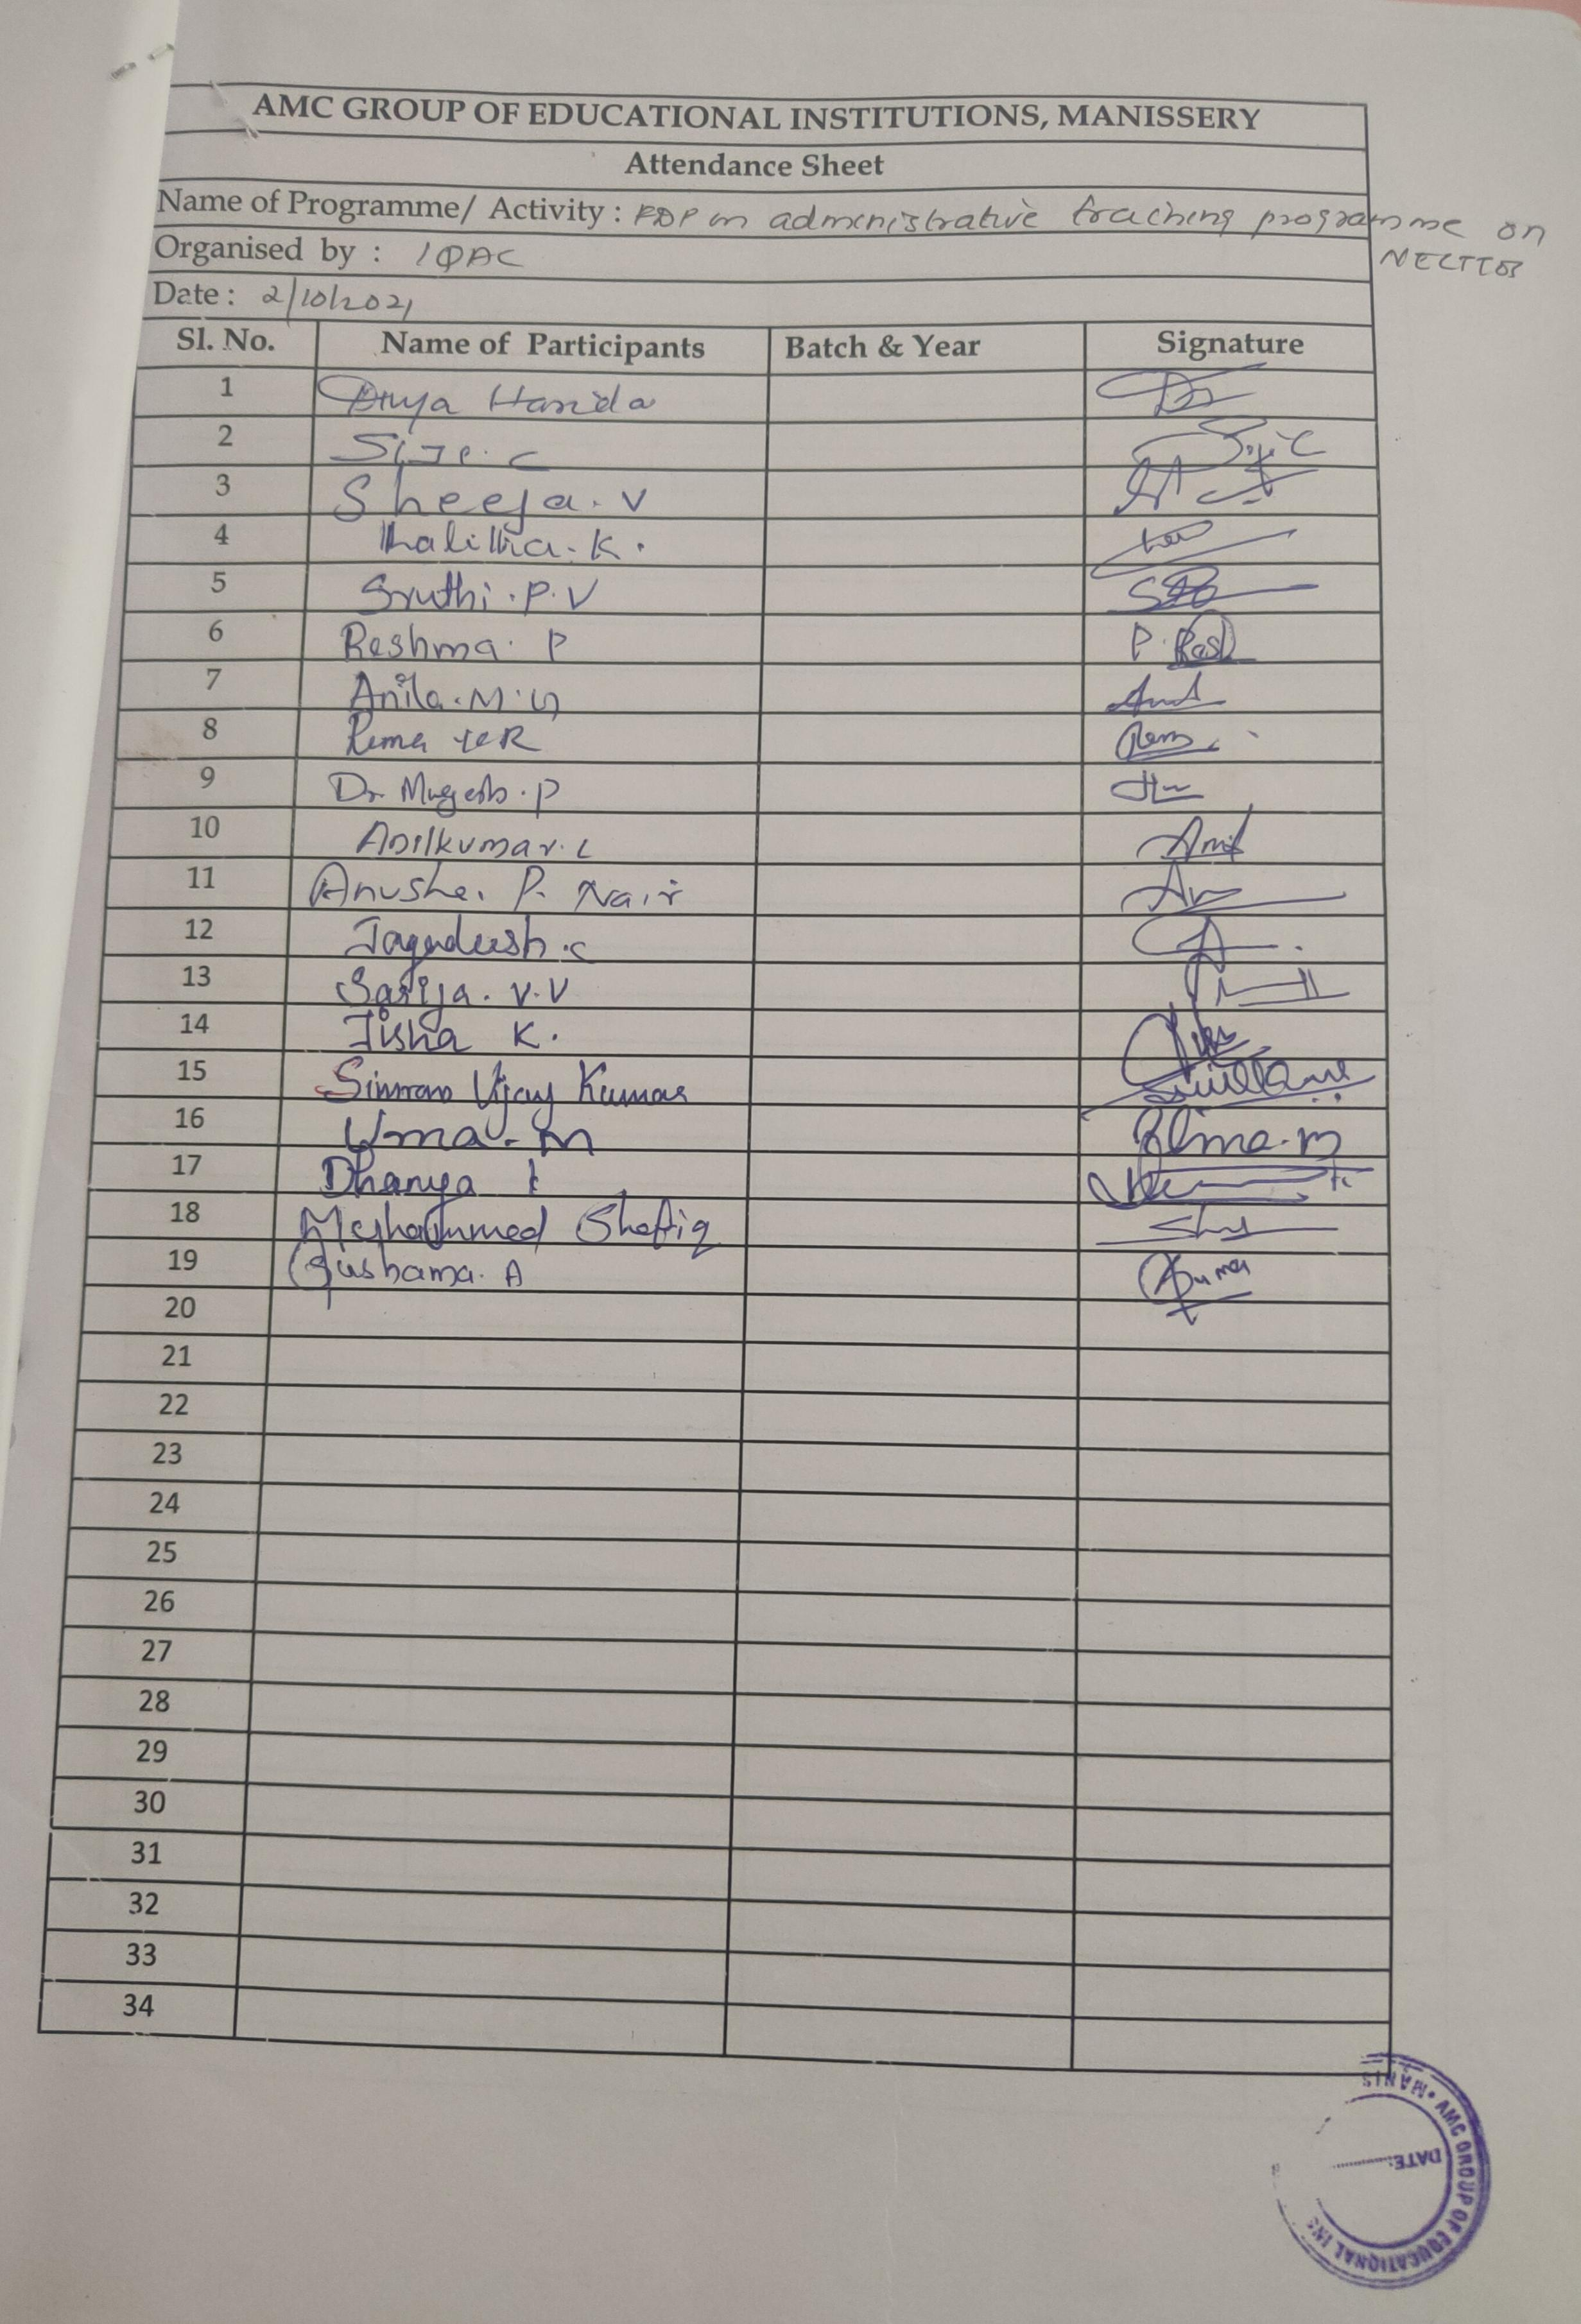 AMC GROUP OF EDUCATIONAL INSTITUTIONS, MANISSERY
Attendance Sheet
Name of Programme/ Activity : FDP on administrative traching programme on
NECTTOB
Organised by : IQAC
Date : 2/10/2021
Sl. No. Name of Participants Batch & Year Signature
1 Divya Harida
2 Siji. C Siji C
3 Sheeja. V
4 Lalitha. K.
5 Sruthi. P. V
6 Reshma. P P. Resh
7 Anila. M.
8 Rema K R Rema
9 Dr. Mugesh. P
10 Anilkumar. C Anil
11 Anusha. P. Nair
12 Jagadeesh. C
13 Sarija. V. V
14 Jisha K.
15 Simran Vijay Kumar
16 Uma. M Uma. M
17 Dhanya
18 Mohammed Shafiq
19 Sushama. A
20
21
22
23
24
25
26
27
28
29
30
31
32
33
34
MANIS • AMC GROUP OF EDUCATIONAL INS
DATE: